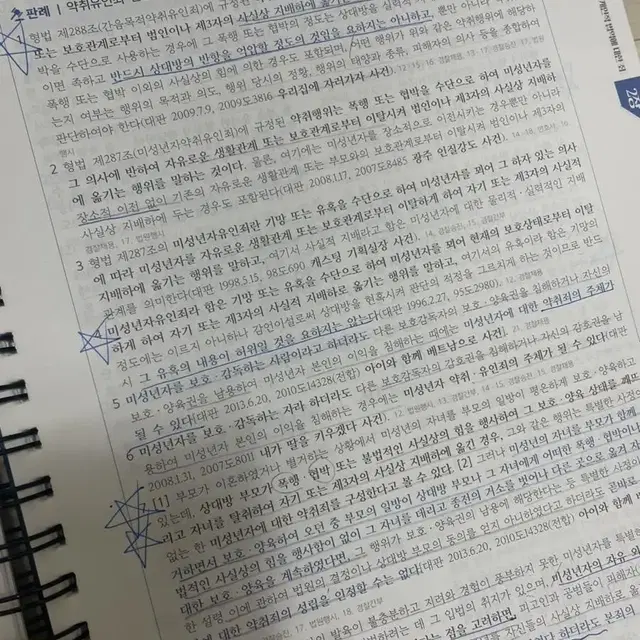 판례 | 약취유인죄
형법 제288조(간음목적약취유인죄)에 규정된
또는 보호관계로부터 이탈시켜 범인이나 제3자의 사실상 지배하에
박을 수단으로 사용하는 경우에 그 폭행 또는 협박의 정도는 상대방을 실력적
이면 족하고 반드시 상대방의 반항을 억압할 정도의 것임을 요하지는 아니하고, 뿐만 아니라
폭행 또는 협박 이외의 사실상의 힘에 의한 경우도 포함되며, 어떤 행위가 위와 같은 약취행위에 해당하
는지 여부는 행위의 목적과 의도, 행위 당시의 정황, 행위의 태양과 종류, 피해자의 의사 등을 종합하여
판단하여야 한다(대판 2009.7.9, 2009도3816 유리집에 자러가자 사건).
2 형법 제287조(미성년자약취유인죄)에 규정된 약취행위는 폭행 또는 협박을 수단으로 하여 미성년자를
그 의사에 반하여 자유로운 생활관계 또는 보호관계로부터 이탈시켜 범인이나 제3자의 사실상 지배하
에 옮기는 행위를 말하는 것이다. 물론, 여기에는 미성년자를 장소적으로 이전시키는 경우뿐만 아니라
장소적 이전 없이 기존의 자유로운 생활관계 또는 부모와의 보호관계로부터 이탈시켜 범인이나 제3자의
사실상 지배하에 두는 경우도 포함된다(대판 2008.1.17, 2007도8485 광주 인질강도 사건).
3 형법 제287조의 미성년자유인죄란 기망 또는 유혹을 수단으로 하여 미성년자를 꾀어 그 하자 있는 의사
에 따라 미성년자를 자유로운 생활관계 또는 보호관계로부터 이탈하게 하여 자기 또는 제3자의 사실적
지배하에 옮기는 행위를 말하고, 여기서 사실적 지배라고 함은 미성년자에 대한 물리적·실력적인 지배
관계를 의미한다(대판 1998.5.15, 98도690 캐스팅 기획실장 사건).
미성년자유인죄라 함은 기망 또는 유혹을 수단으로 하여 미성년자를 꾀어 현재의 보호상태로부터 이탈
하게 하여 자기 또는 제3자의 사실적 지배하로 옮기는 행위를 말하고, 여기서의 유혹이라 함은 기망의
정도에는 이르지 아니하나 감언이설로써 상대방을 현혹시켜 판단의 적정을 그르치게 하는 것이므로 반드
시 그 유혹의 내용이 허위일 것을 요하지는 않는다(대판 1996.2.27, 95도2980).
5 미성년자를 보호·감독하는 사람이라고 하더라도 다른 보호감독자의 보호·양육권을 침해하거나 자신의
보호·양육권을 남용하여 미성년자 본인의 이익을 침해하는 때에는 미성년자에 대한 약취죄의 주체가
될 수 있다(대판 2013.6.20, 2010도14328(전합) 아이와 함께 베트남으로 사건).
6 미성년자를 보호·감독하는 자라 하더라도 다른 보호감독자의 감호권을 침해하거나 자신의 감호권을 남
용하여 미성년자 본인의 이익을 침해하는 경우에는 미성년자 약취·유인죄의 주체가 될 수 있다(대판
2008.1.31, 2007도8011 내가 딸을 키우겠다 사건).
[1] 부모가 이혼하였거나 별거하는 상황에서 미성년의 자녀를 부모의 일방이 평온하게 보호·양육하고
있는데, 상대방 부모가 폭행, 협박 또는 불법적인 사실상의 힘을 행사하여 그 보호·양육 상태를 깨뜨
리고 자녀를 탈취하여 자기 또는 제3자의 사실상 지배하에 옮긴 경우, 그와 같은 행위는 특별한 사정이
없는 한 미성년자에 대한 약취죄를 구성한다고 볼 수 있다. [2] 그러나 미성년의 자녀를 부모가 함께
거하면서 보호·양육하여 오던 중 부모의 일방이 상대방 부모나 그 자녀에게 어떠한 폭행, 협박이나
법적인 사실상의 힘을 행사함이 없이 그 자녀를 데리고 종전의 거소를 벗어나 다른 곳으로 옮겨 자녀
대한 보호·양육을 계속하였다면, 그 행위가 보호·양육권의 남용에 해당한다는 등 특별한 사정이
한 설령 이에 관하여 법원의 결정이나 상대방 부모의 동의를 얻지 아니하였다고 하더라도
에 대한 약취죄의 성립을 인정할 수는 없다(대판 2013.6.20, 2010도14328(전합) 아이와 함께